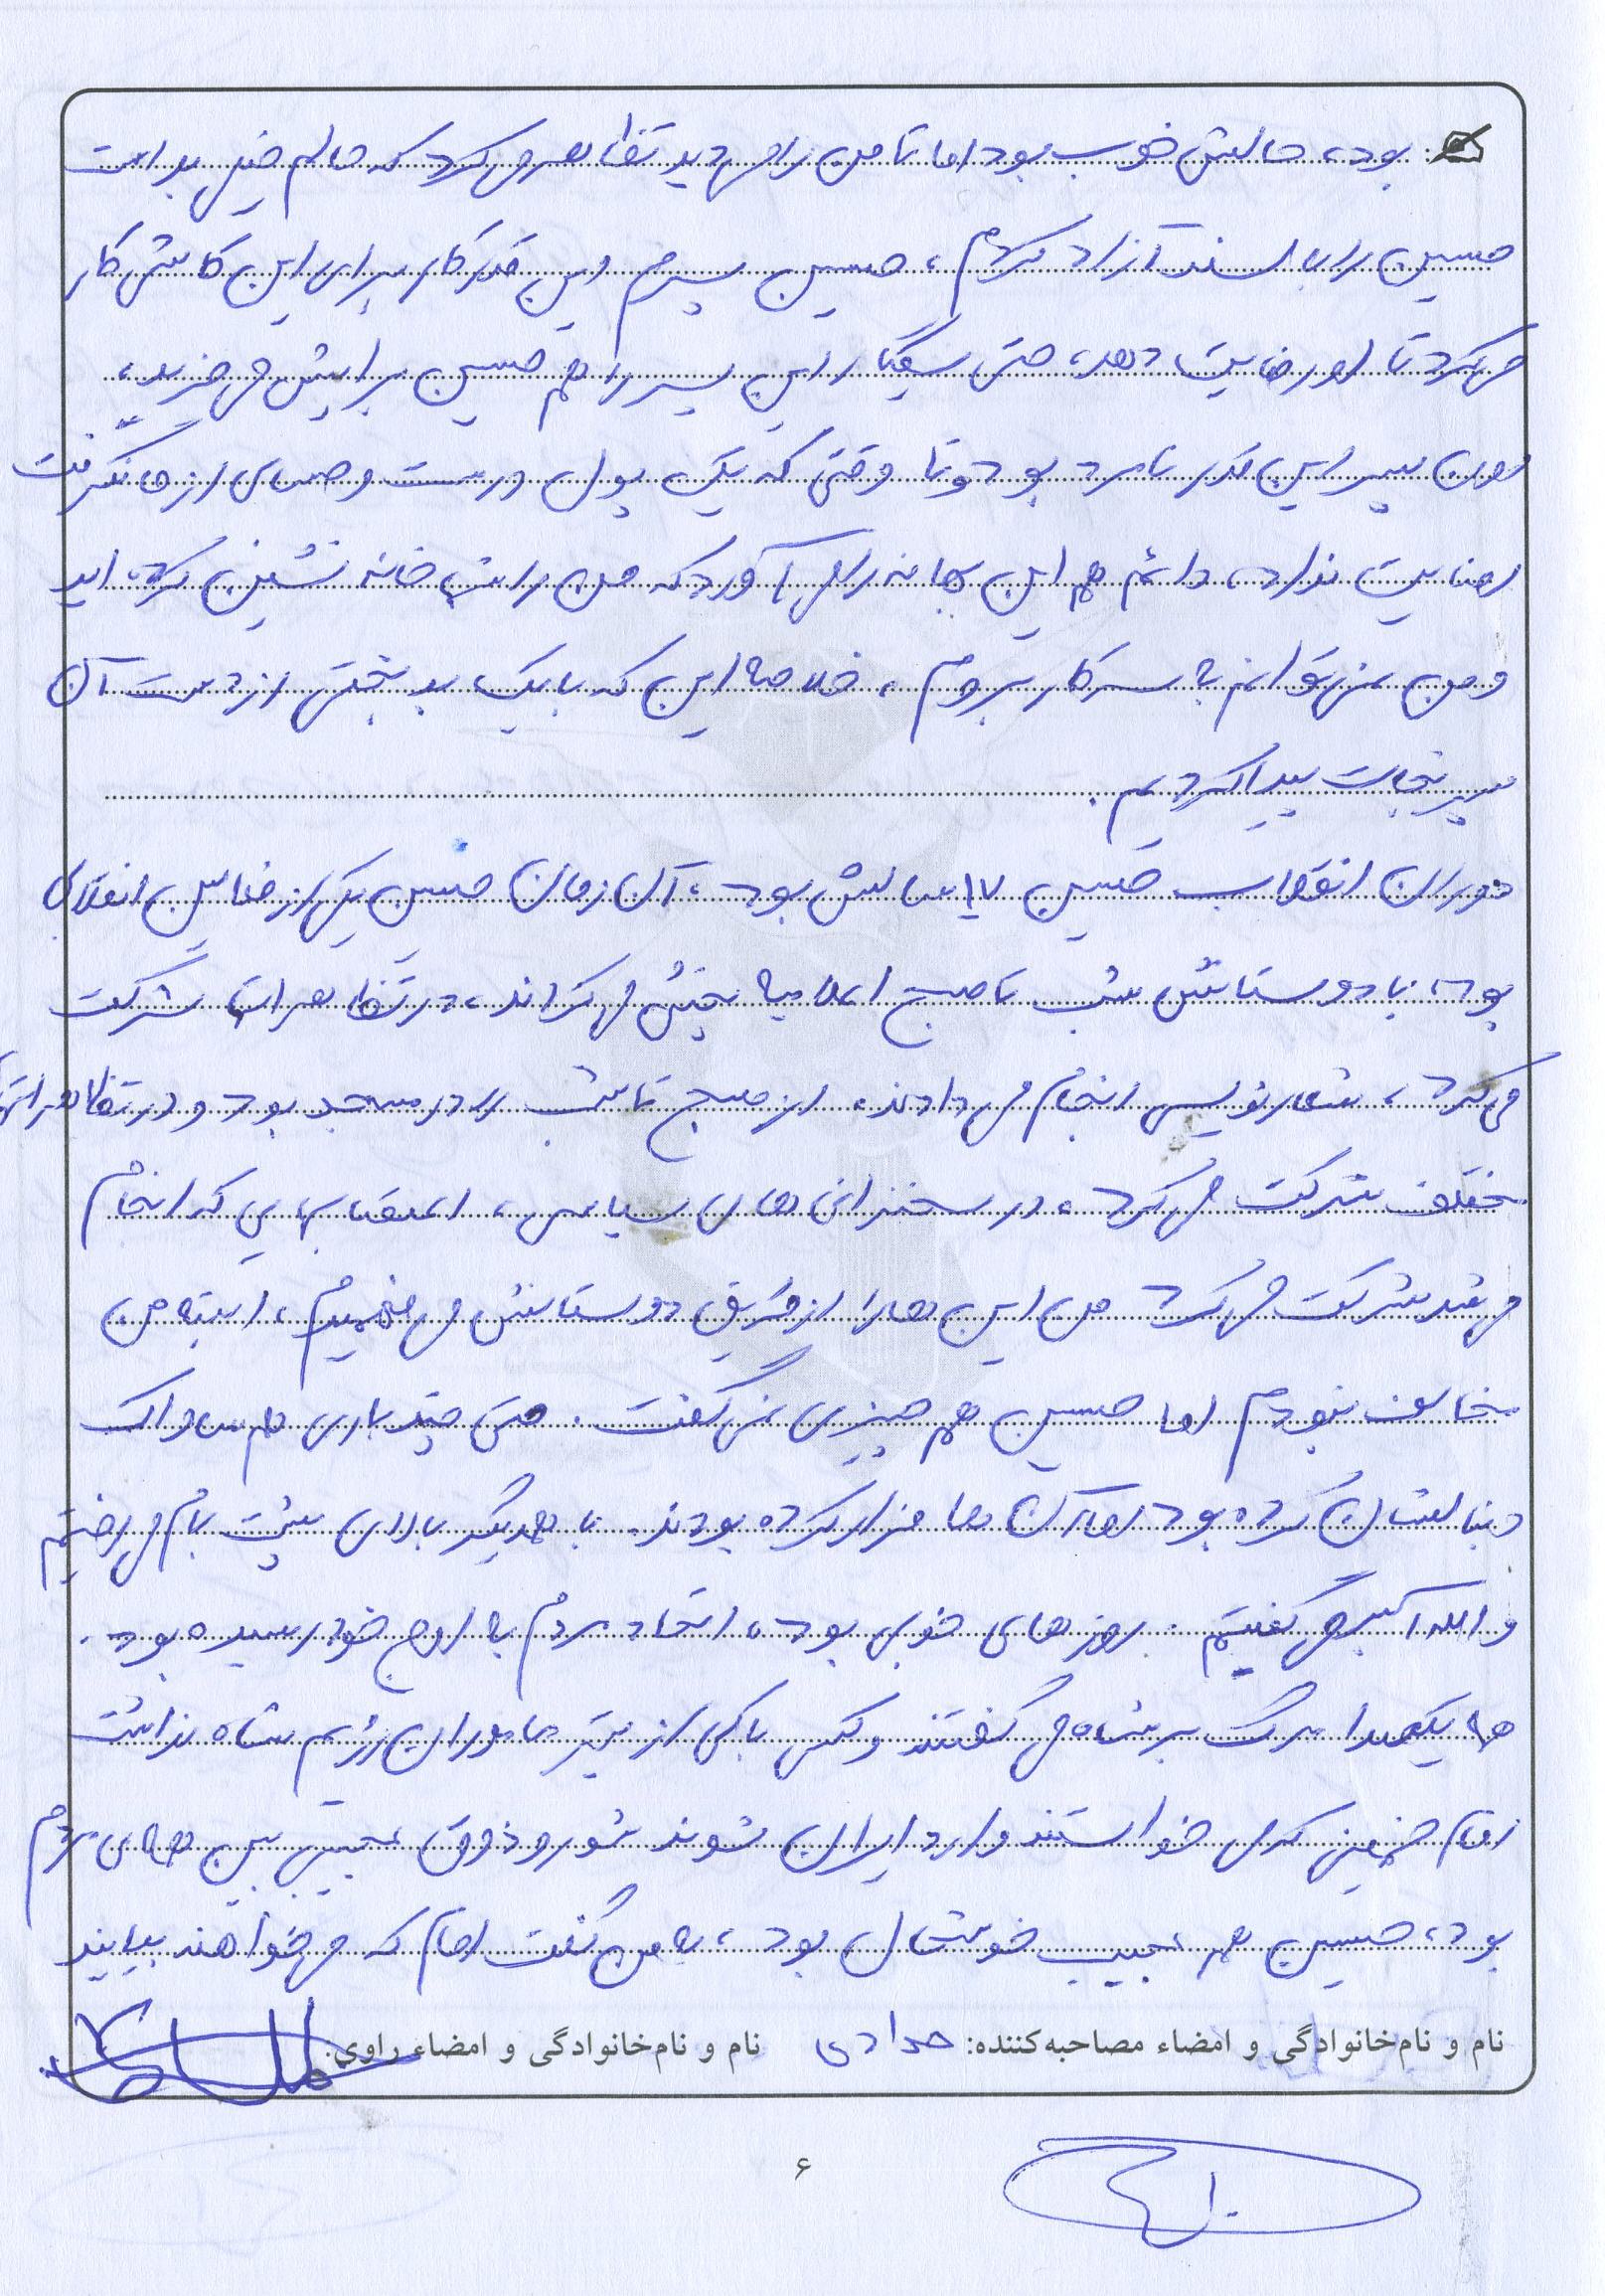 بود، حالش خوب بود اما تا من را می دید تظاهر می کرد که حالم خیلی بد است
حسین را با سند آزاد کردم، حسین پسرم این قدر کار برای این کاش کار
می کرد تا او رضایت دهد، حتی سیگار این پسر را هم حسین برایش می خرید،
اون پسر این قدر نامرد بود و تا وقتی که یک پول درست و حسابی از ما نگرفت
رضایت نداد، دائم هم این بهانه را می آورد که من را خانه نشین کرده اید
و من نمی توانم به سر کار بروم، خلاصه این که با یک بدبختی از دست آن
پسر نجات پیدا کردیم.
دوران انقلاب حسین ۱۷ سالش بود، آن زمان حسین یکی از فعالین انقلابی
بود، با دوستانش شب تا صبح اعلامیه پخش می کردند، در تظاهرات شرکت
می کرد، شعار نویسی انجام می دادند، از صبح تا شب را در مسجد بود و در تظاهرات
مختلف شرکت می کرد، در سخنرانی های سیاسی، اعتصاب هایی که انجام
می شد شرکت می کرد من این ها را از طریق دوستانش می فهمیدم، البته من
مخالف نبودم اما حسین هم چیزی نمی گفت. حتی چند باری هم ساواک
دنبالشان کرده بود اما آن ها فرار کرده بودند. با همدیگر بالای پشت بام می رفتیم
و الله اکبر می گفتیم. روزهای خوبی بود، اتحاد مردم به اوج خود رسیده بود.
همه یکصدا مرگ بر شاه می گفتند و کسی باکی از تیر ماموران رژیم شاه نداشت
امام خمینی که می خواستند وارد ایران شوند شور و ذوق عجیبی بین همه ی مردم
بود، حسین هم عجیب خوشحال بود، به من گفت امام که می خواهند بیایند
نام و نام‌خانوادگی و امضاء مصاحبه‌کننده: حدادی نام و نام‌خانوادگی و امضاء راوی:
۶